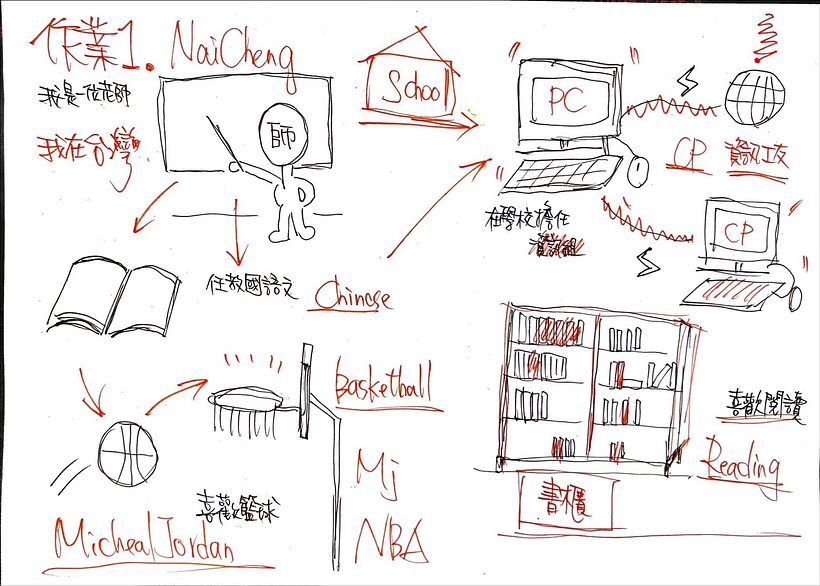 作業1. NaiCheng
我是一位老師
我在台灣
師
School
PC
CP 資訊工友
在學校擔任
資訊組
CP
任教國語文 Chinese
Basketball
喜歡閱讀
Reading
書櫃
Mj
NBA
喜歡籃球
Micheal Jordan